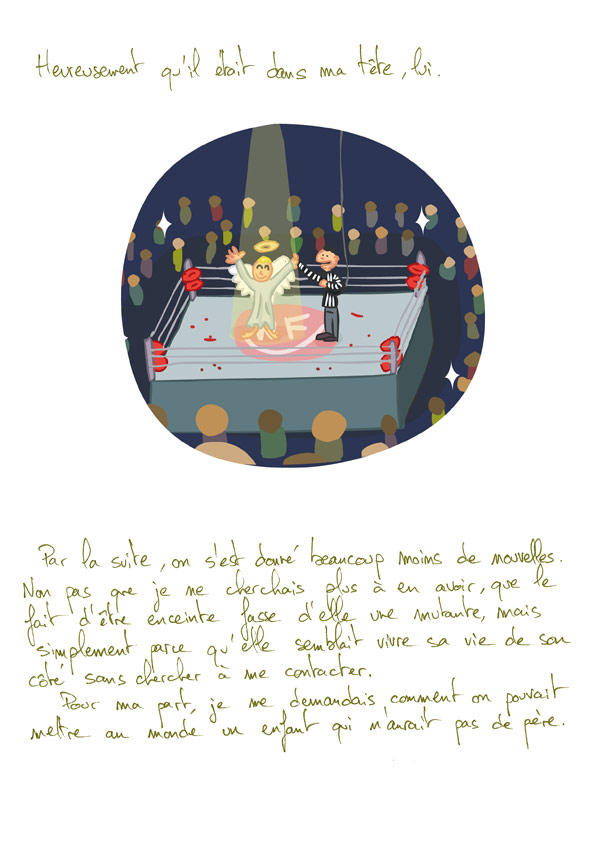 Heureusement qu'il était dans ma tête, lui.
F
Par la suite, on s'est donné beaucoup moins de nouvelles.
Non pas que je ne cherchais plus à en avoir, que le
fait d'être enceinte fasse d'elle une mutante, mais
simplement parce qu'elle semblait vivre sa vie de son
côté sans chercher à me contacter.
Pour ma part, je me demandais comment on pouvait
mettre au monde un enfant qui n'aurait pas de père.